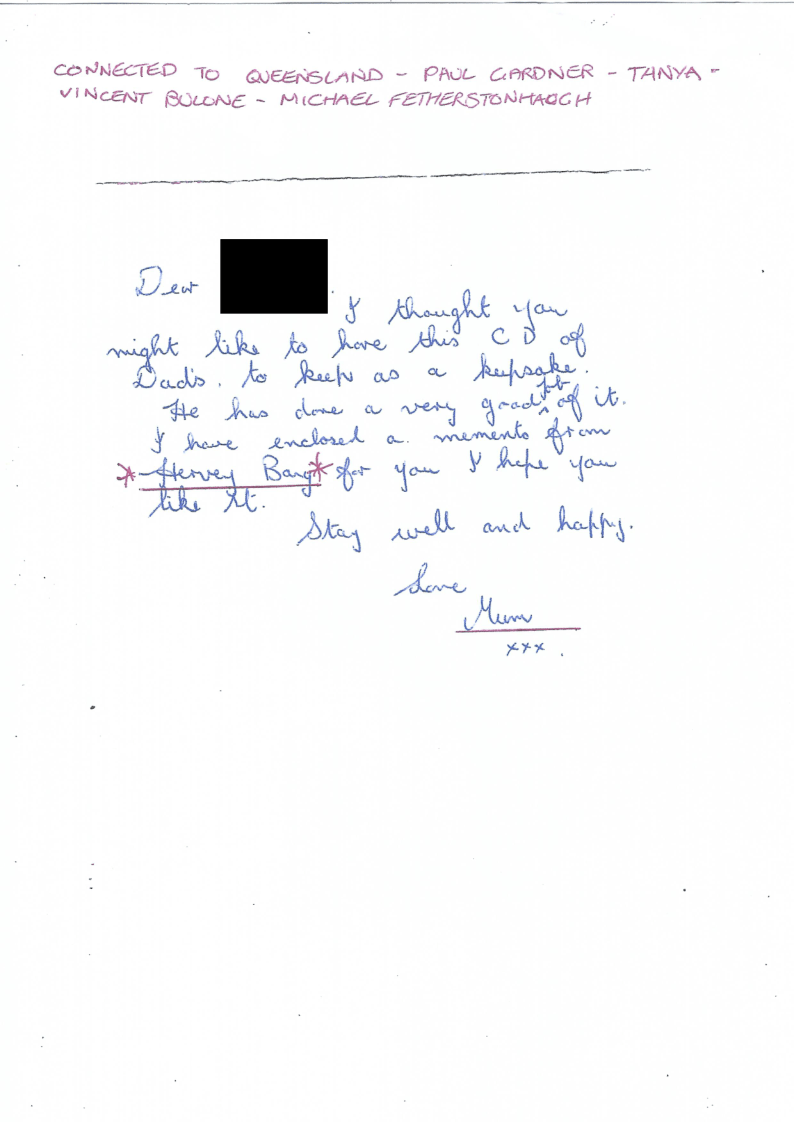 CONNECTED TO QUEENSLAND - PAUL GARDNER - TANYA -
VINCENT BULONE - MICHAEL FETHERSTONHAUGH
Dear .
I thought you
might like to have this CD of
Dad's. to keep as a keepsake.
He has done a very good job of it.
I have enclosed a. memento from
*Hervey Bay* for you I hope you
like it.
Stay well and happy.
Love
Mum
xxx.